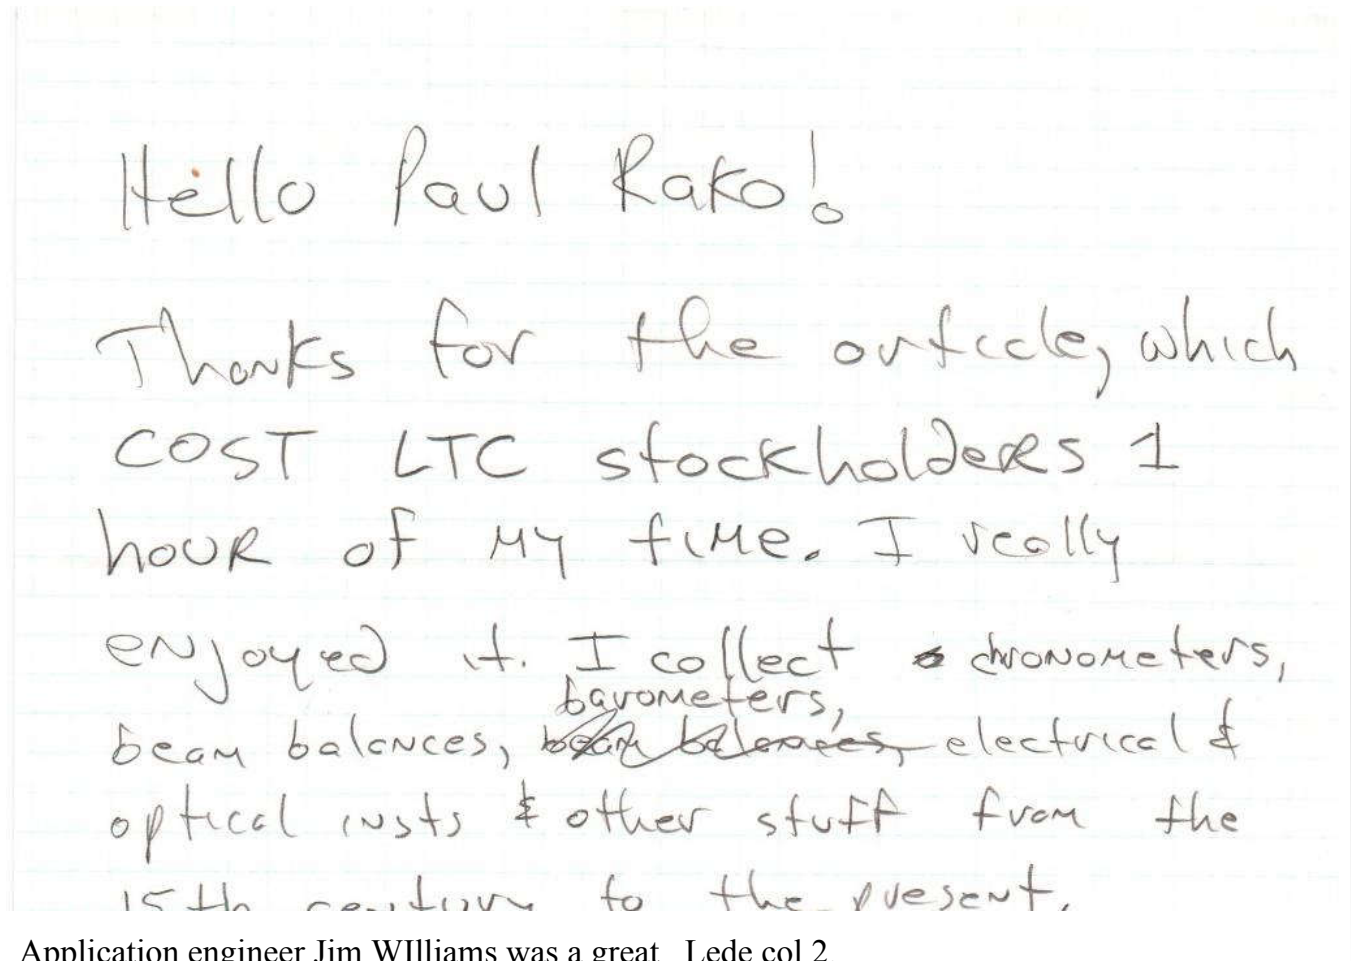 Hello Paul Rako!
Thanks for the article, which
COST LTC stockholders 1
hour of my time. I really
enjoyed it. I collect chronometers,
barometers,
beam balances, beam balances, electrical &
optical insts & other stuff from the
15th century to the present.
Application engineer Jim WIlliams was a great Lede col 2